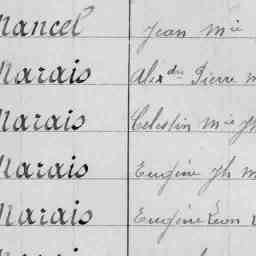 Mancel Jean Mie
Marais Alexdre Pierre M
Marais Célestin Mie Jh
Marais Eugène Jh M
Marais Eugène Léon